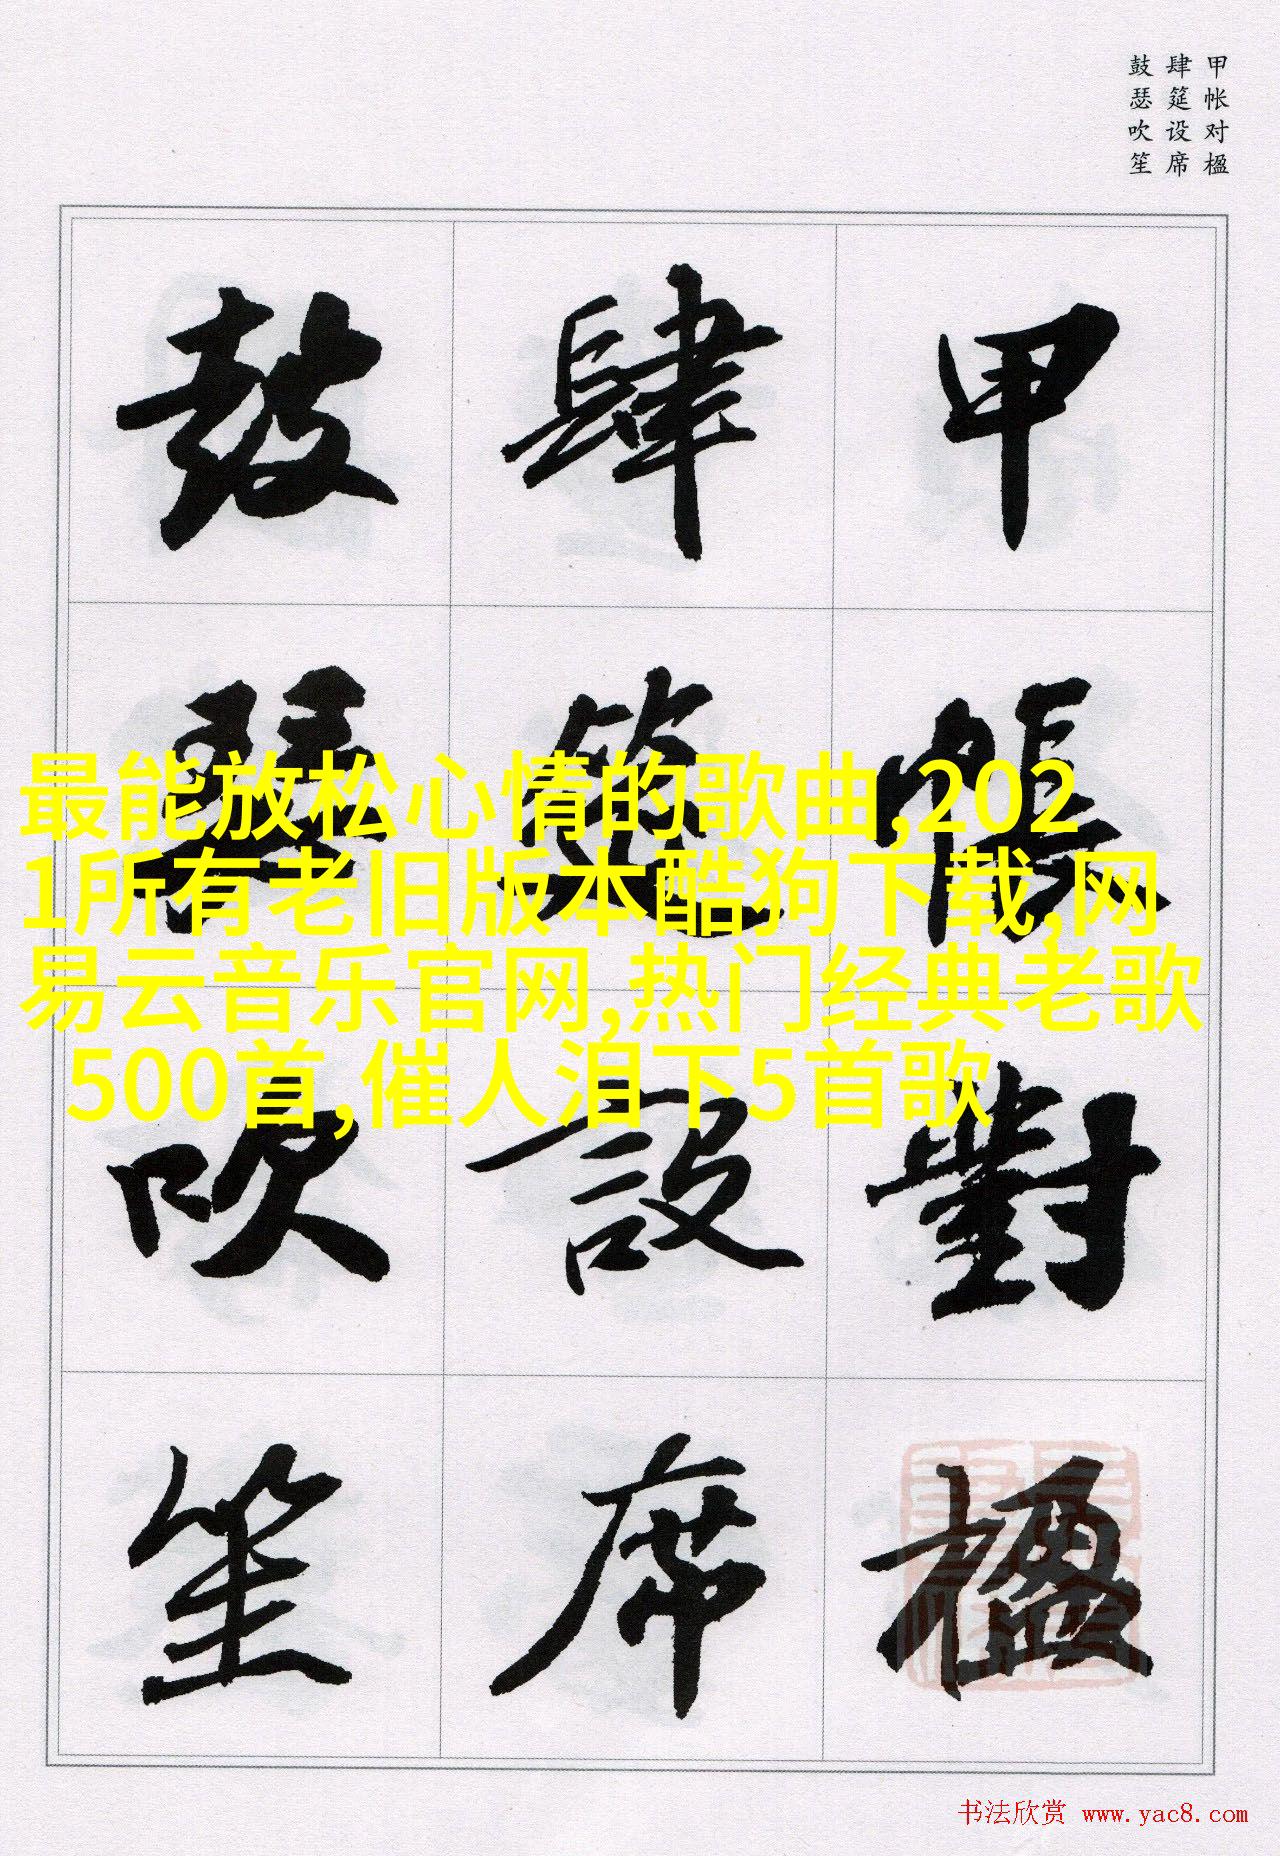 甲帐对楹
肆筵设席
鼓瑟吹笙
甲帳對楹
肆筵設席
鼓瑟吹笙
最能放松心情的歌曲,202
1所有老旧版本酷狗下载,网
易云音乐官网,热门经典老歌
500首,催人泪下5首歌
书法欣赏 www.yac8.com